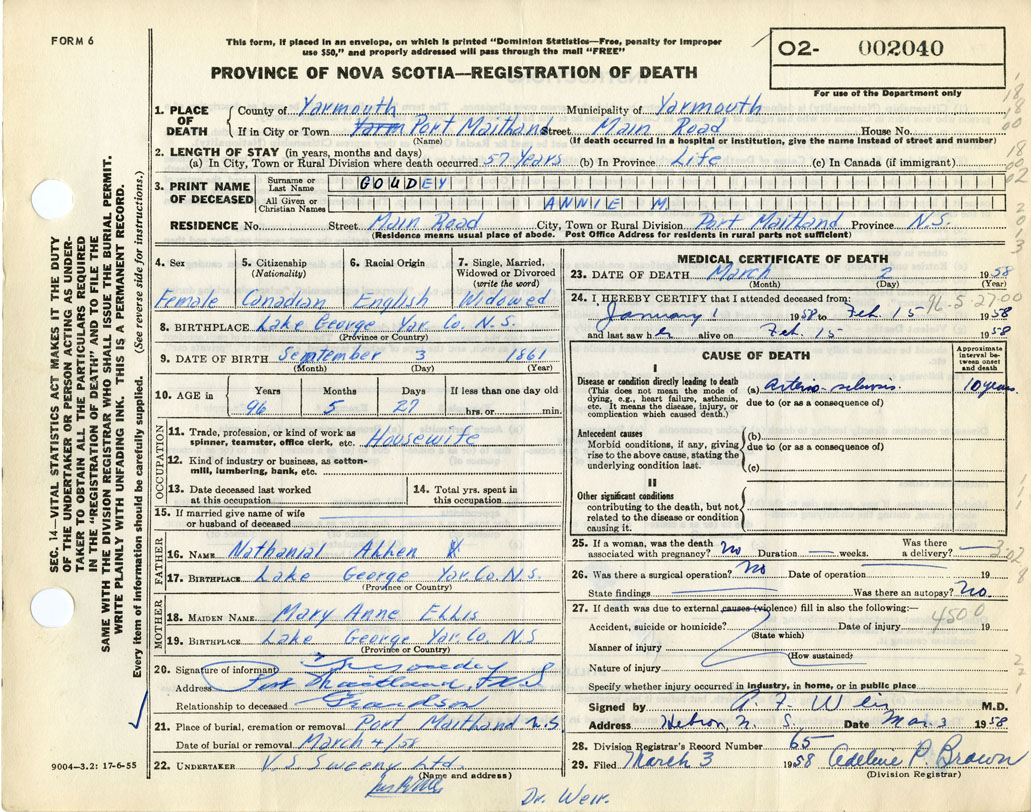 FORM 6
This form, if placed in an envelope, on which is printed "Dominion Statistics—Free, penalty for improper
use $50," and properly addressed will pass through the mail "FREE"
PROVINCE OF NOVA SCOTIA—REGISTRATION OF DEATH
02- 002040
For use of the Department only
SEC. 14—VITAL STATISTICS ACT MAKES IT THE DUTY
OF THE UNDERTAKER OR PERSON ACTING AS UNDER-
TAKER TO OBTAIN ALL THE PARTICULARS REQUIRED
IN THE "REGISTRATION OF DEATH" AND TO FILE THE
SAME WITH THE DIVISION REGISTRAR WHO SHALL ISSUE THE BURIAL PERMIT.
WRITE PLAINLY WITH UNFADING INK. THIS IS A PERMANENT RECORD.
Every item of information should be carefully supplied. (See reverse side for instructions.)
1. PLACE OF DEATH
County of Yarmouth Municipality of Yarmouth
If in City or Town Yarm Port Maitland Street Main Road House No.
(Name) (If death occurred in a hospital or institution, give the name instead of street and number)
2. LENGTH OF STAY (in years, months and days)
(a) In City, Town or Rural Division where death occurred 57 Years (b) In Province Life (c) In Canada (if immigrant)
3. PRINT NAME OF DECEASED
Surname or Last Name GOUDEY
All Given or Christian Names ANNIE M
RESIDENCE No. Street Main Road City, Town or Rural Division Port Maitland Province N.S.
(Residence means usual place of abode. Post Office Address for residents in rural parts not sufficient)
4. Sex Female
5. Citizenship (Nationality) Canadian
6. Racial Origin English
7. Single, Married, Widowed or Divorced (write the word) Widowed
8. BIRTHPLACE Lake George Yar. Co. N.S.
(Province or Country)
9. DATE OF BIRTH September 3 1861
(Month) (Day) (Year)
10. AGE in Years Months Days If less than one day old
96 5 27 hrs. or min.
OCCUPATION
11. Trade, profession, or kind of work as
spinner, teamster, office clerk, etc. Housewife
12. Kind of industry or business, as cotton-
mill, lumbering, bank, etc.
13. Date deceased last worked
at this occupation
14. Total yrs. spent in
this occupation
15. If married give name of wife
or husband of deceased
FATHER
16. NAME Nathanial
17. BIRTHPLACE Lake George Yar. Co. N.S.
(Province or Country)
MOTHER
18. MAIDEN NAME Mary Anne Ellis
19. BIRTHPLACE Lake George Yar. Co. N.S
(Province or Country)
20. Signature of informant Goudey
Address Port Maitland, N.S
Relationship to deceased Grandson
21. Place of burial, cremation or removal Port Maitland N.S.
Date of burial or removal March 4/58
22. UNDERTAKER V.S Sweeny Ltd.
(Name and address)
9004—3.2: 17-6-55
MEDICAL CERTIFICATE OF DEATH
23. DATE OF DEATH March 2 1958
(Month) (Day) (Year)
24. I HEREBY CERTIFY that I attended deceased from: 96.5 27.00
January 1 1958 to Feb 15 1958
and last saw her alive on Feb. 15 1958
CAUSE OF DEATH
Approximate interval between onset and death
I
Disease or condition directly leading to death
(This does not mean the mode of
dying, e.g., heart failure, asthenia,
etc. It means the disease, injury, or
complication which caused death.)
(a) Arterio-sclerosis 10 years
due to (or as a consequence of)
Antecedent causes
Morbid conditions, if any, giving
rise to the above cause, stating the
underlying condition last.
(b)
due to (or as a consequence of)
(c)
II
Other significant conditions
contributing to the death, but not
related to the disease or condition
causing it.
25. If a woman, was the death
associated with pregnancy? No Duration — weeks. Was there a delivery? —
26. Was there a surgical operation? No Date of operation 19
State findings Was there an autopsy? No.
27. If death was due to external causes (violence) fill in also the following:—
Accident, suicide or homicide? Date of injury 19
4500
(State which)
Manner of injury
(How sustained)
Nature of injury
Specify whether injury occurred in industry, in home, or in public place
Signed by A. F. Weir M.D.
Address Hebron, N. S. Date Mar. 3 1958
28. Division Registrar's Record Number 65
29. Filed March 3 1958 Adeline P. Brown
(Division Registrar)
Dr. Weir.